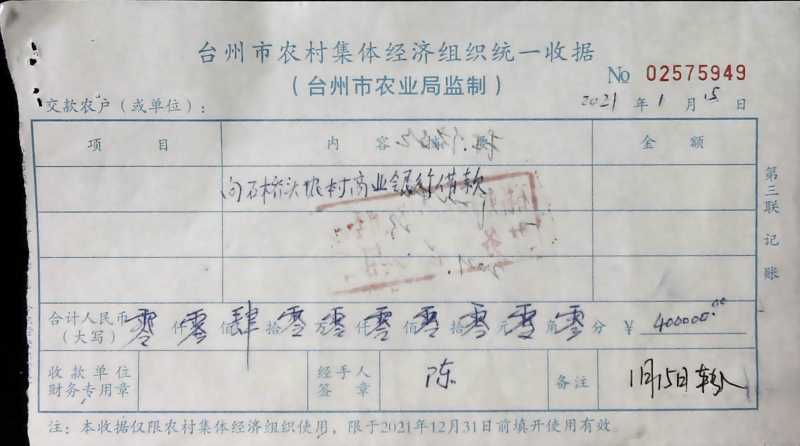 台州市农村集体经济组织统一收据
(台州市农业局监制)
No 02575949
交款农户(或单位): 2021 年 1 月 15 日
项 目 内 容 金 额
向石桥头农村商业银行借款
第三联 记账
合计人民币(大写) 零 仟 零 佰 肆 拾 零 万 零 仟 零 佰 零 拾 零 元 零 角 零 分 ¥ 400000.00
收款单位财务专用章 经手人签章 陈 备注 1月15日转入
注:本收据仅限农村集体经济组织使用,限于2021年12月31日前填开使用有效。